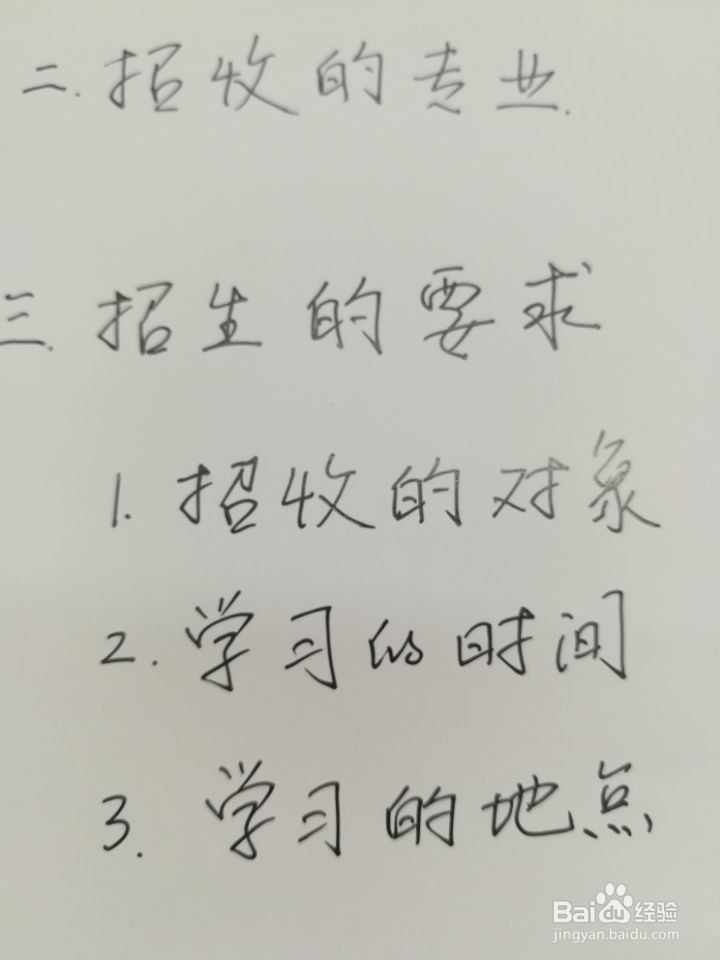 二.招收的专业.
三.招生的要求
1.招收的对象
2.学习的时间
3.学习的地点
Baidu经验
jingyan.baidu.com